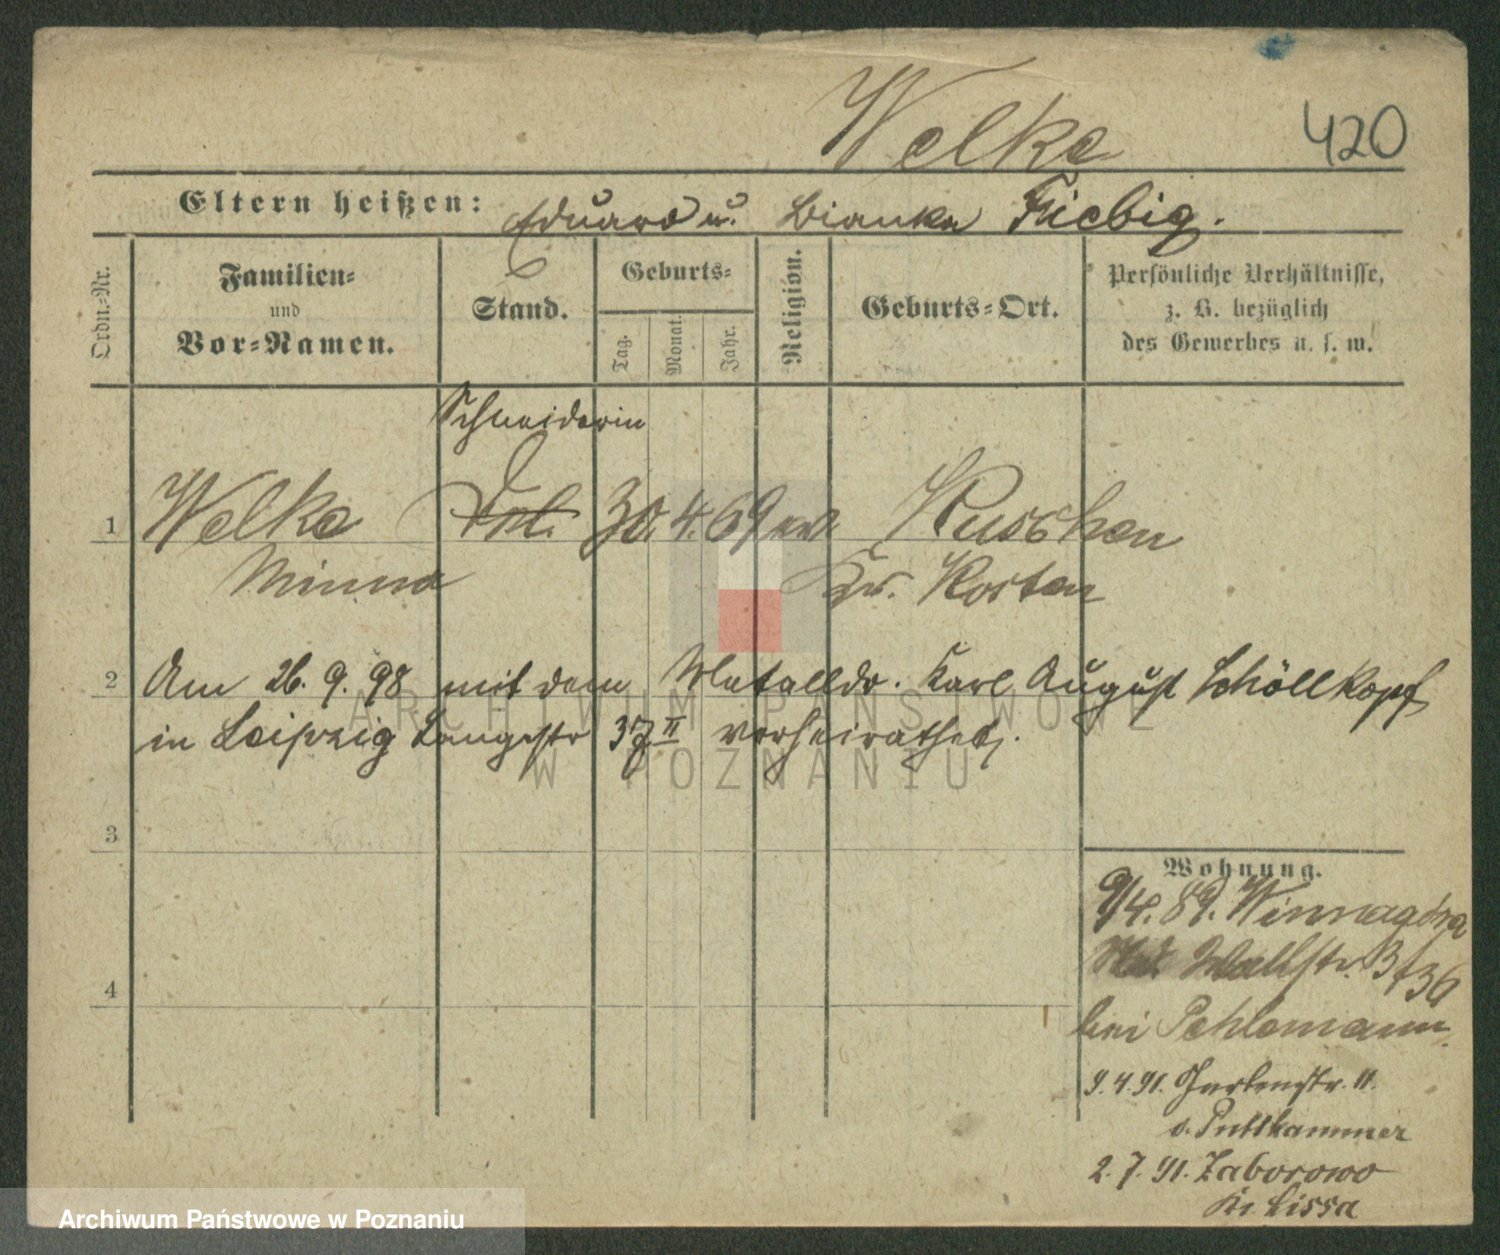 Welke
420
Eltern heißen: Eduard u. Bianka Fiebig.
Ordn.-Nr.
Familien-
und
Vor-Namen.
Stand.
Geburts-
Tag.
Monat.
Jahr.
Religion.
Geburts-Ort.
Persönliche Verhältnisse,
z. B. bezüglich
des Gewerbes u. s. w.
Schneiderin
1 Welke 30. 4. 69 ev. Kuschen
Minna Kr. Kosten
2 Am 26. 9. 98 mit dem Metalldr. Karl August Schöllkopf
in Leipzig Langestr 37 II verheirathet.
3
4
Wohnung.
9/4. 89. Winnagóra
Wallstr. 36
bei Pehlemann
9. 4. 91. Gartenstr. 11.
v. Puttkammer
2. 7. 91. Zaborowo
Kr. Lissa
ARCHIWUM PAŃSTWOWE
W POZNANIU
Archiwum Państwowe w Poznaniu